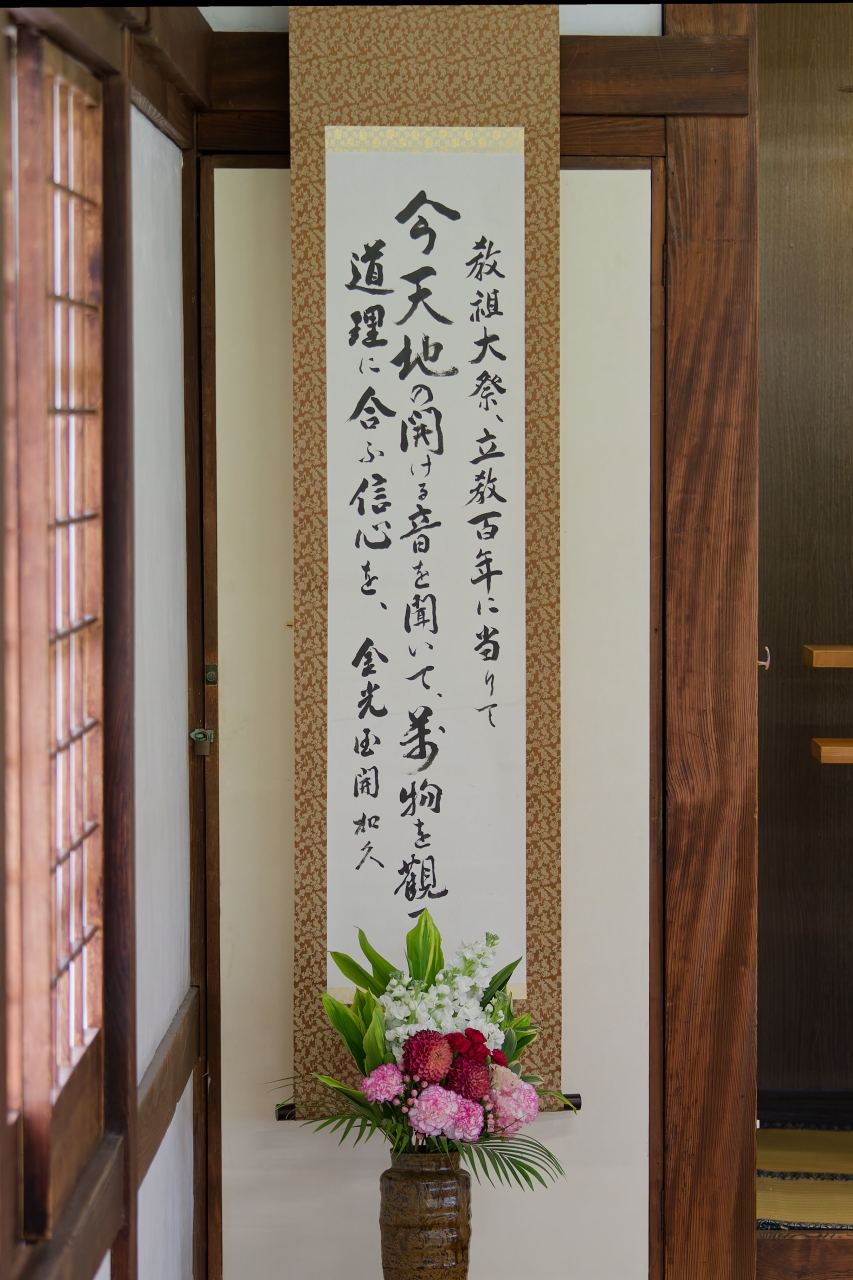 教祖大祭、立教百年に当りて
今天地の開ける音を聞いて、萬物を觀て
道理に合ふ信心を、金光国開 加久